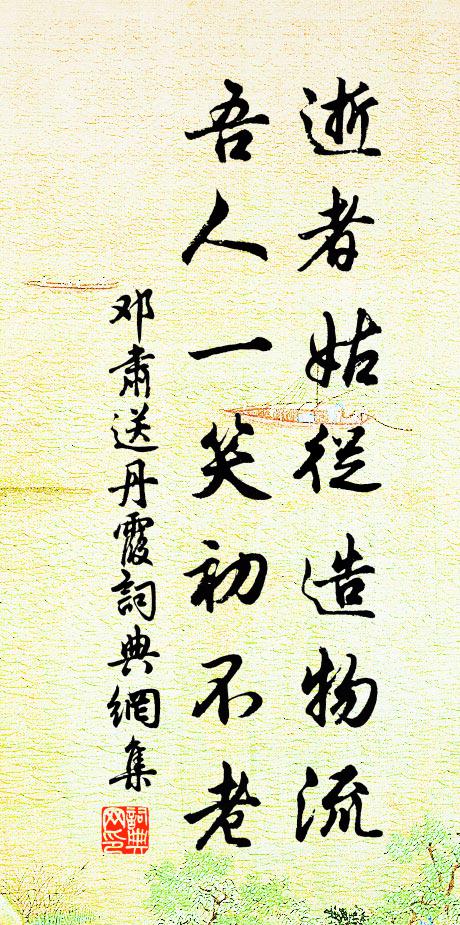 逝者姑從造物流
吾人一笑初不老
邓肅送丹霞詞典網集
詞典网印